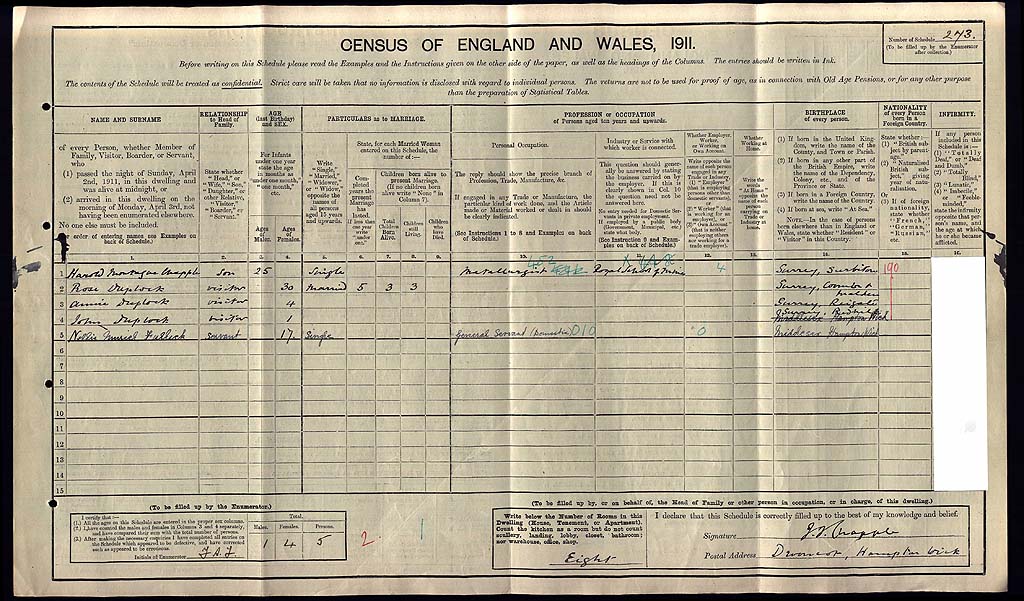 Number of Schedule 273.
(To be filled up by the Enumerator
after collection.)
CENSUS OF ENGLAND AND WALES, 1911.
Before writing on this Schedule please read the Examples and the Instructions given on the other side of the paper, as well as the headings of the Columns. The entries should be written in Ink.
The contents of the Schedule will be treated as confidential. Strict care will be taken that no information is disclosed with regard to individual persons. The returns are not to be used for proof of age, as in connection with Old Age Pensions, or for any other purpose
than the preparation of Statistical Tables.
NAME AND SURNAME
of every Person, whether Member of
Family, Visitor, Boarder, or Servant,
who
(1) passed the night of Sunday, April
2nd, 1911, in this dwelling and
was alive at midnight, or
(2) arrived in this dwelling on the
morning of Monday, April 3rd, not
having been enumerated elsewhere.
No one else must be included.
order of entering names see Examples on
back of Schedule.)
RELATIONSHIP
to Head of
Family.
State whether
"Head," or
"Wife," "Son,"
"Daughter," or
other Relative,
"Visitor,"
"Boarder," or
"Servant."
AGE
(last Birthday)
and SEX.
For Infants
under one year
state the age
in months as
"under one month,"
"one month,"
etc.
Ages of Males.
Ages of Females.
PARTICULARS as to MARRIAGE.
Write
"Single,"
"Married,"
"Widower,"
or "Widow,"
opposite the
names of
all persons
aged 15 years
and upwards.
State, for each Married Woman
entered on this Schedule, the
number of:—
Completed years the
present
Marriage
has
lasted.
If less than
one year
write
"under
one."
Children born alive to
present Marriage.
(If no children born
alive write "None" in
Column 7).
Total
Children
Born
Alive.
Children
still
Living.
Children
who
have
Died.
PROFESSION or OCCUPATION
of Persons aged ten years and upwards.
Personal Occupation.
The reply should show the precise branch of
Profession, Trade, Manufacture, &c.
If engaged in any Trade or Manufacture, the
particular kind of work done, and the Article
made or Material worked or dealt in should
be clearly indicated.
(See Instructions 1 to 8 and Examples on back
of Schedule.)
Industry or Service
with which worker is connected.
This question should generally be answered by stating
the business carried on by
the employer. If this is
clearly shown in Col. 10
the question need not be
answered here.
No entry needed for Domestic Servants in private employment.
If employed by a public body
(Government, Municipal, etc.)
state what body.
(See Instruction 9 and Examples on back of Schedule.)
Whether Employer,
Worker,
or Working on
Own Account.
Write opposite the
name of each person
engaged in any
Trade or Industry,
(1) "Employer"
(that is employing
persons other than
domestic servants),
or
(2) "Worker" (that
is working for an
employer), or
(3) "Own Account"
(that is neither
employing others
nor working for a
trade employer).
Whether
Working at
Home.
Write the
words
"At Home"
opposite the
name of each
person
carrying on
Trade or
Industry at
home.
BIRTHPLACE
of every person.
(1) If born in the United Kingdom, write the name of the
County, and Town or Parish.
(2) If born in any other part of
the British Empire, write
the name of the Dependency,
Colony, etc., and of the
Province or State.
(3) If born in a Foreign Country,
write the name of the Country.
(4) If born at sea, write "At Sea."
NOTE.—In the case of persons
born elsewhere than in England or
Wales, state whether "Resident" or
"Visitor" in this Country.
NATIONALITY
of every Person
born in a
Foreign Country.
State whether:—
(1) "British
subject by
parentage,"
(2) "Naturalised
British
subject,"
giving
year of naturalisation.
(3) If of foreign
nationality,
state whether
"French,"
"German,"
"Russian,"
etc.
INFIRMITY.
If any person
included in this
Schedule is:—
(1) "Totally
Deaf," or "Deaf
and Dumb,"
(2) "Totally
Blind,"
(3) "Lunatic,"
(4) "Imbecile,"
or "Feeble-minded,"
state the infirmity
opposite that person's name, and
the age at which
he or she became
afflicted.
1. 2. 3. 4. 5. 6. 7. 8. 9. 10. 11. 12. 13. 14. 15. 16.
1 Harold Montague Son 25 Single Metallurgist Royal School of Mines 4 Surrey, Surbiton 190
2 Rose Duplock visitor 30 Married 5 3 3 Surrey, Coombe Malden
3 Annie Duplock visitor 4 Surrey, Reigate
4 John Duplock visitor 1 Surrey, Redhill
5 Nellie Muriel servant 17 Single General Servant (Domestic) 010 0 Middlesex Hampton Wick
6
7
8
9
10
11
12
13
14
15
(To be filled up by the Enumerator.)
I certify that:—
(1.) All the ages on this Schedule are entered in the proper sex columns.
(2.) I have counted the males and females in Columns 3 and 4 separately,
and have compared their sum with the total number of persons.
(3.) After making the necessary enquiries I have completed all entries on
the Schedule which appeared to be defective, and have corrected
such as appeared to be erroneous.
Initials of Enumerator
Total.
Males. Females. Persons.
1 4 5
2
1
(To be filled up by, or on behalf of, the Head of Family or other person in occupation, or in charge, of this dwelling.)
Write below the Number of Rooms in this
Dwelling (House, Tenement, or Apartment).
Count the kitchen as a room but do not count
scullery, landing, lobby, closet, bathroom;
nor warehouse, office, shop.
Eight
I declare that this Schedule is correctly filled up to the best of my knowledge and belief.
Signature
Postal Address Hampton Wick